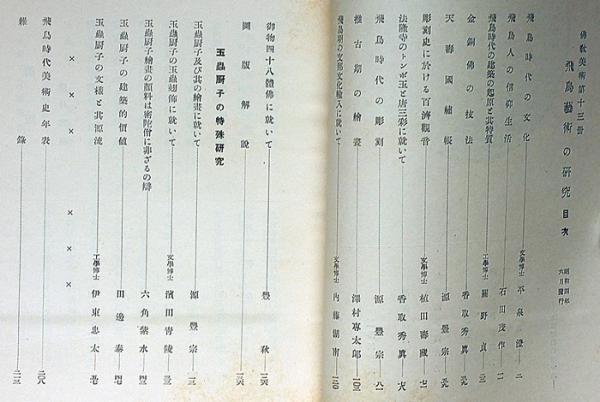 佛敎美術第十三册
飛鳥藝術の硏究 目次
昭和四年六月發行
飛鳥時代の文化 文學博士 平泉澄 二
飛鳥人の信仰生活 石田茂作
飛鳥時代の建築の起原と其特質 工學博士 關野貞
金銅佛の技法 香取秀眞
天壽國繡帳 源豐宗
彫刻史に於ける百濟觀音 文學博士 植田壽藏
法隆寺のトンボ玉と唐三彩に就いて 香取秀眞
飛鳥時代の彫刻 源豐宗 八一
推古期の繪畫 澤村專太郎 一〇三
飛鳥期の支那文化輸入に就いて 文學博士 內藤湖南 一一〇
御物四十八體佛に就いて 豐秋
圖版解說
玉蟲厨子の特殊硏究
玉蟲厨子及び其の繪畫に就いて 源豐宗
玉蟲厨子の玉蟲翅飾に就いて 文學博士 濱田靑陵
玉蟲厨子繪畫の顏料は密陀僧に非ざるの辯 六角紫水
玉蟲厨子の建築的價値 田邊泰
玉蟲厨子の文樣と其源流 工學博士 伊東忠太
× × × ×
飛鳥時代美術史年表 二〇八
雜錄 二一三